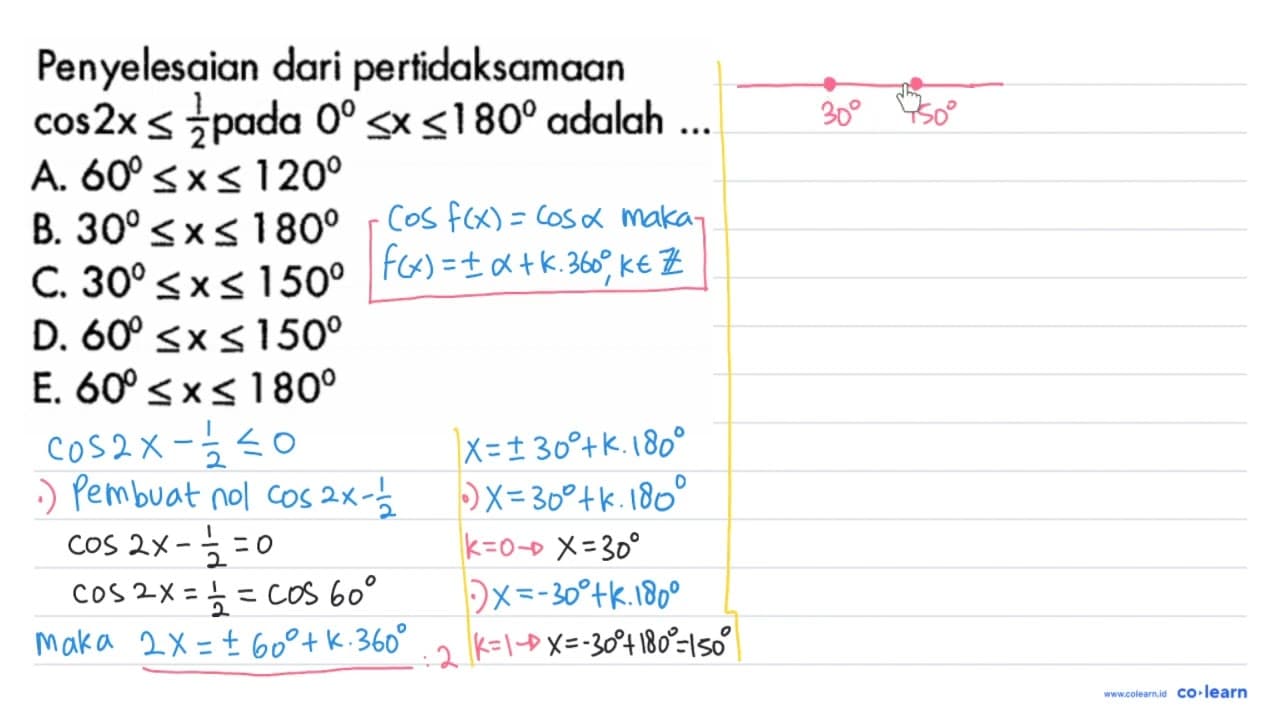 Penyelesaian dari pertidaksamaan
cos2x ≤ 1/2 pada 0⁰ ≤x ≤180⁰ adalah ...
A. 60⁰ ≤ x ≤ 120⁰
B. 30⁰ ≤ x ≤ 180⁰
C. 30⁰ ≤ x ≤ 150⁰
D. 60⁰ ≤ x ≤ 150⁰
E. 60⁰ ≤ x ≤ 180⁰
Cos f(x) = Cos α maka
f(x) = ± α + k. 360°, k ∈ ℤ
cos 2x - 1/2 ≤ 0
.) Pembuat nol cos 2x - 1/2
cos 2x - 1/2 = 0
cos 2x = 1/2 = cos 60°
maka 2x = ± 60° + k. 360° : 2
x = ± 30° + k. 180°
.) x = 30° + k. 180°
k=0 → x = 30°
.) x = -30° + k. 180°
k=1 → x = -30° + 180° = 150°
30° 150°
www.colearn.id co·learn